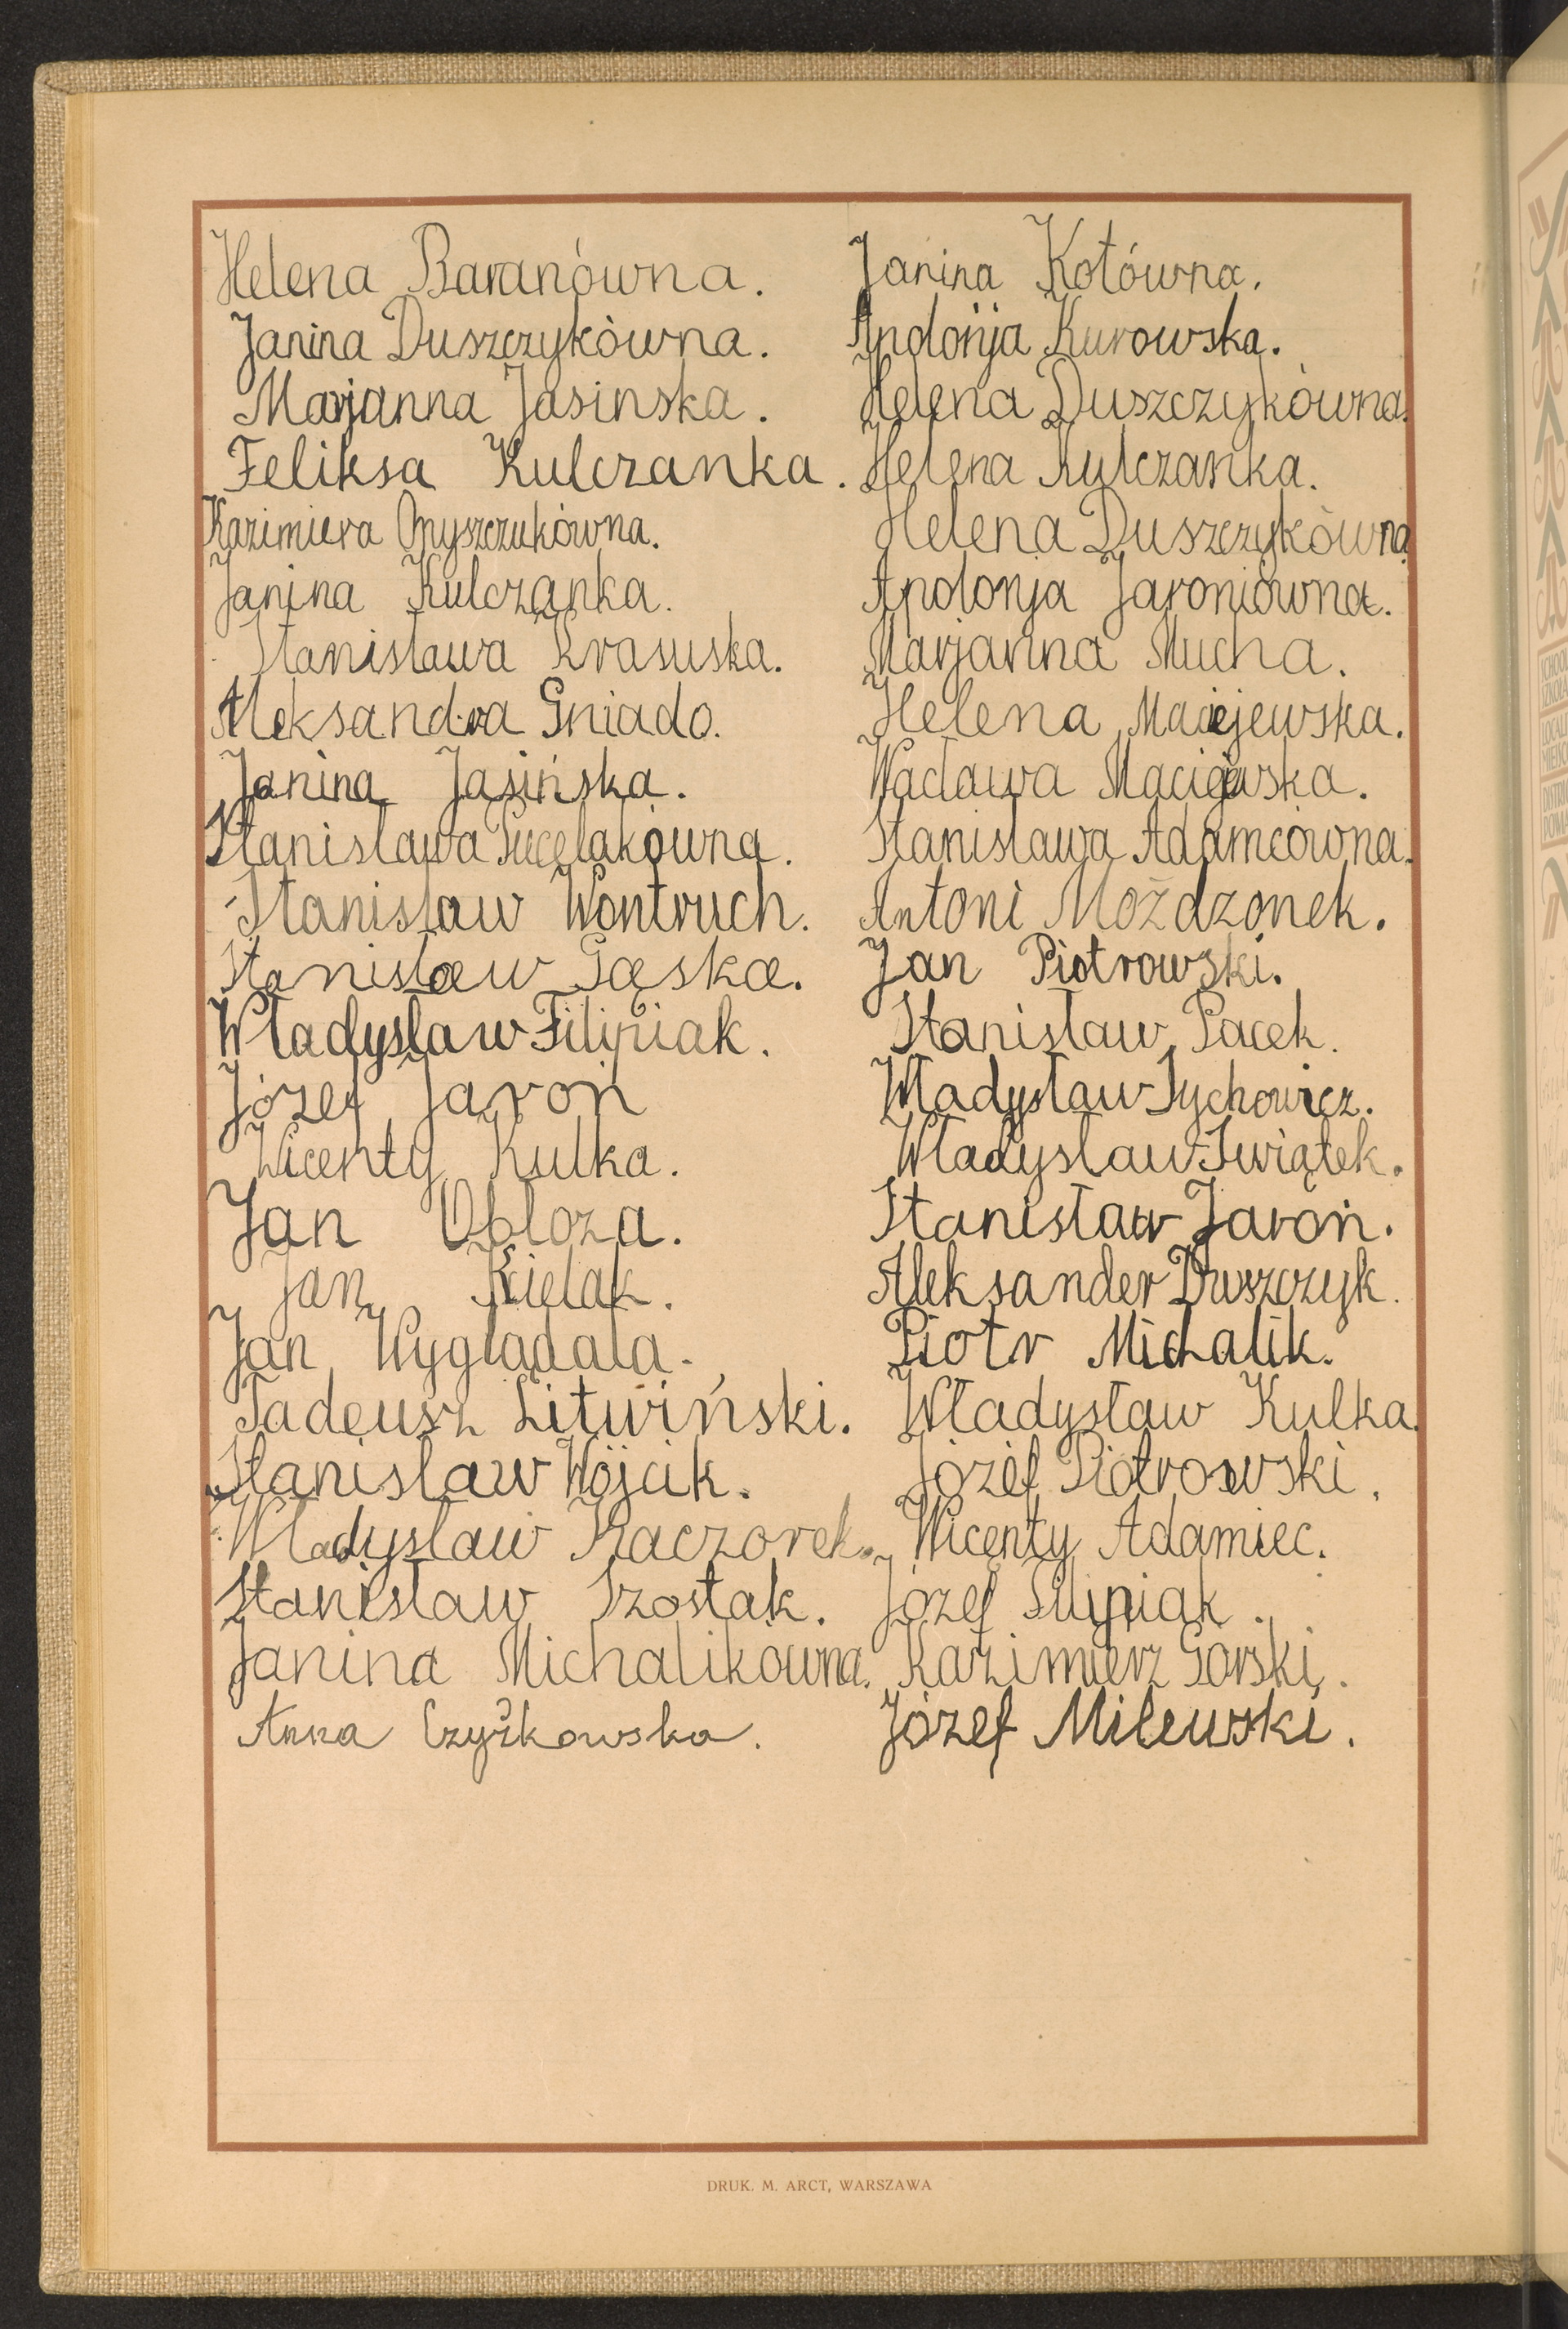 Helena Baranówna.
Janina Duszczykówna.
Marjanna Jasinska.
Feliksa Kulczanka.
Kazimiera Onyszczukówna.
Janina Kulczanka.
Stanisława Krasuska.
Aleksandra Gniado.
Janina Jasińska.
Stanisława
Stanisław Wontruch.
Stanisław Gąska.
Władysław Filipiak.
Józef Jaroń
Wicenty Kulka.
Jan Obłoza.
Jan Kielak.
Jan Wyglądała.
Tadeusz Litwiński.
Stanisław Wójcik.
Władysław Kaczorek.
Stanisław Szostak.
Janina Michalikówna.
Anna Czyżkowska.
Janina Kotówna.
Apolonja Kurowska.
Helena Duszczykówna.
Helena Kulczanka.
Helena Duszczykówna
Apolonja Jaroniówna.
Marjanna Mucha.
Helena Maciejewska.
Wacława Maciejewska.
Stanisława Adamcówna.
Antoni Możdzonek.
Jan Piotrowski.
Stanisław Pacek.
Władysław Sychowicz.
Władysław Swiątek.
Stanisław Jaroń.
Aleksander Duszczyk.
Piotr Michalik.
Władysław Kulka.
Józef Piotrowski.
Wicenty Adamiec.
Józef Filipiak.
Kazimierz Górski.
Józef Milewski.
DRUK. M. ARCT, WARSZAWA